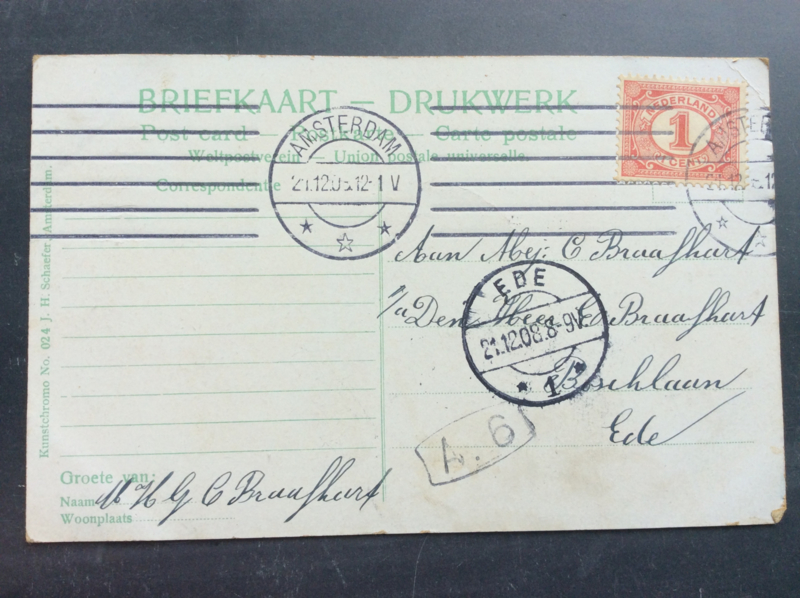 BRIEFKAART — DRUKWERK
Post card — — Carte postale
Weltpostverein — Union postale universelle.
Correspondentie
NEDERLAND
1
CENT
AMSTERDAM
21.12.0 .12-1 V
AMSTE
Aan Mej. C Braafhart
p/a Den Heer Braafhart
Boschlaan
Ede
EDE
21.12.08.8-9V
1
A. 6
Groete van:
Naam M H G C Braafhart
Woonplaats
Kunstchromo No. 024 J. H. Schaefer, Amsterdam.